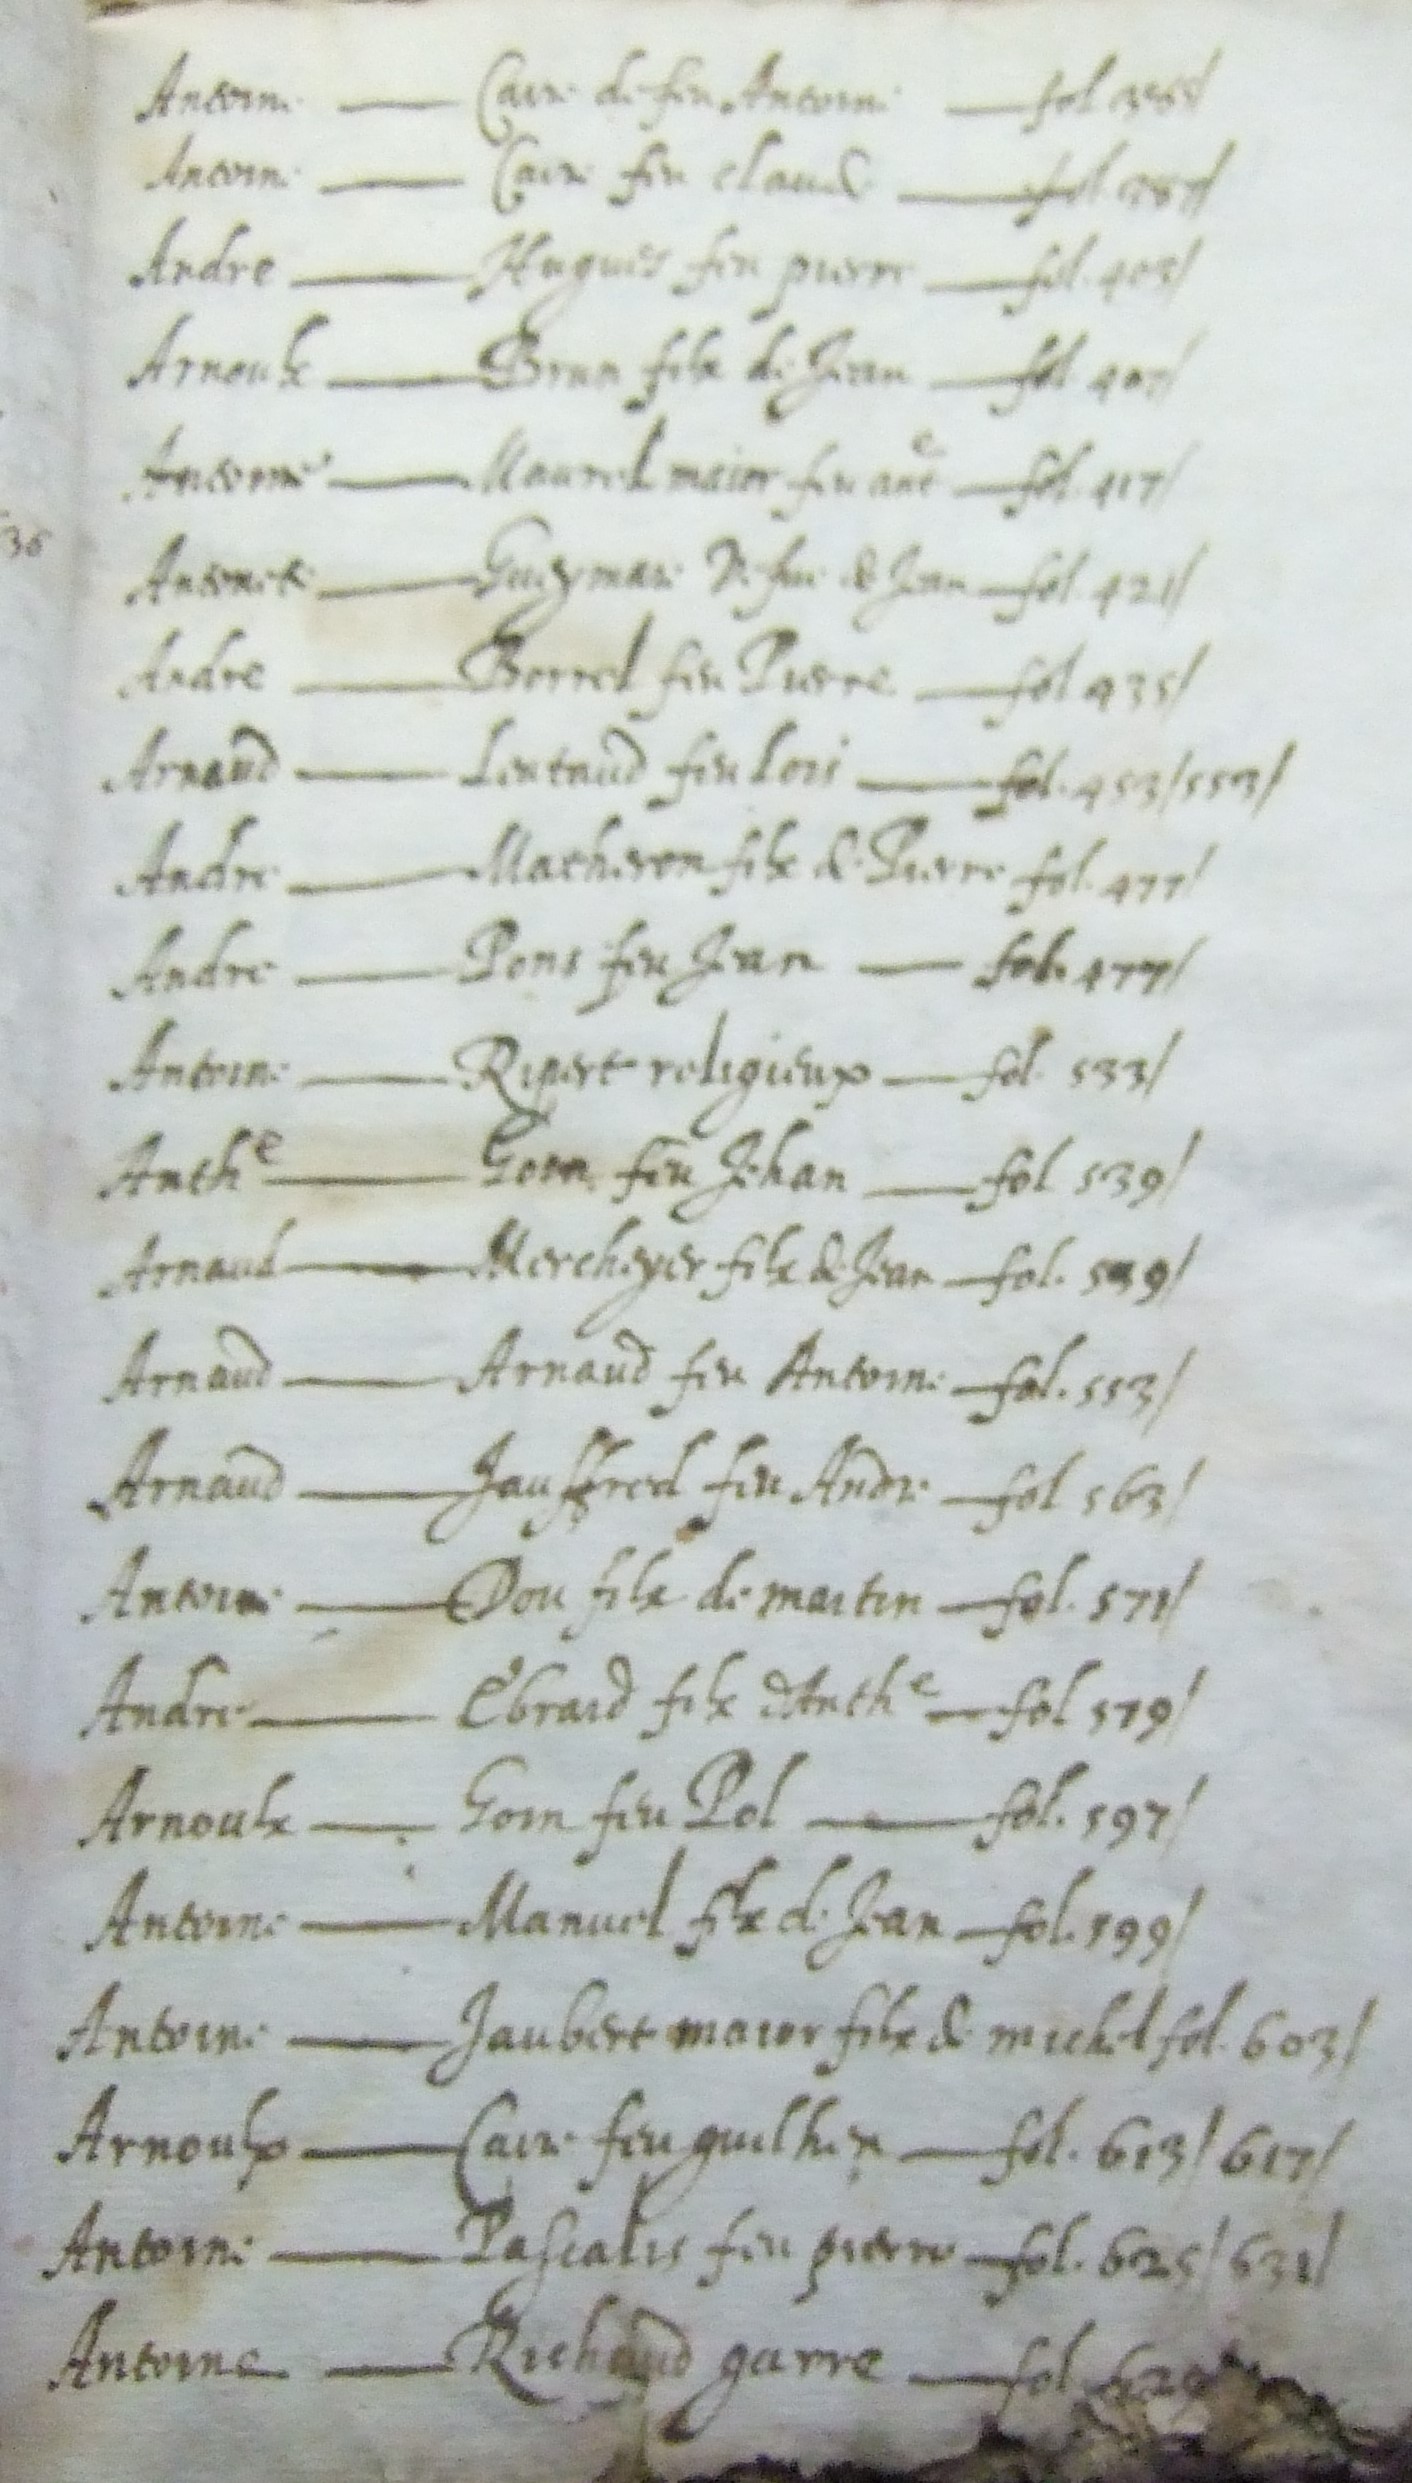 Antoine — Caire de feu Antoine — fol 385/
Antoine — Caire feu claude — fol. 387/
Andre — Hugues feu pierre — fol. 403/
Arnoulx — Brun filx de Jean — fol 407/
Antoine — Maurel maior feu ane — fol. 417/
Antonete — Gueymare feue de Jean — fol. 421/
36
Andre — Borrel feu Pierre — fol 435/
Arnaud — Leutaud feu Lois — fol. 453/553/
Andre — Matheron filx de Pierre fol. 477/
Andre — Pons feu Jean — fol. 477/
Antoine — Ripert religieux — fol. 533/
Anthe — Goin feu Jehan — fol 539/
Arnaud — Mercheyer filx de Jean — fol. 539/
Arnaud — Arnaud feu Antoine — fol. 553/
Arnaud — Jauffred feu Andre — fol 563/
Antoine — Dou filx de martin — fol. 571/
Andre — Ebrard filx dAnthe — fol 579/
Arnoulx — Goin feu Pol — fol. 597/
Antoine — Manuel filx de Jean — fol. 599/
Antoine — Jaubert maior filx de michel fol. 603/
Arnoulx — Caire feu guilhen — fol. 613/617/
Antoine — Pascalis feu pierre — fol. 625/631/
Antoine — Richaud garre — fol. 629